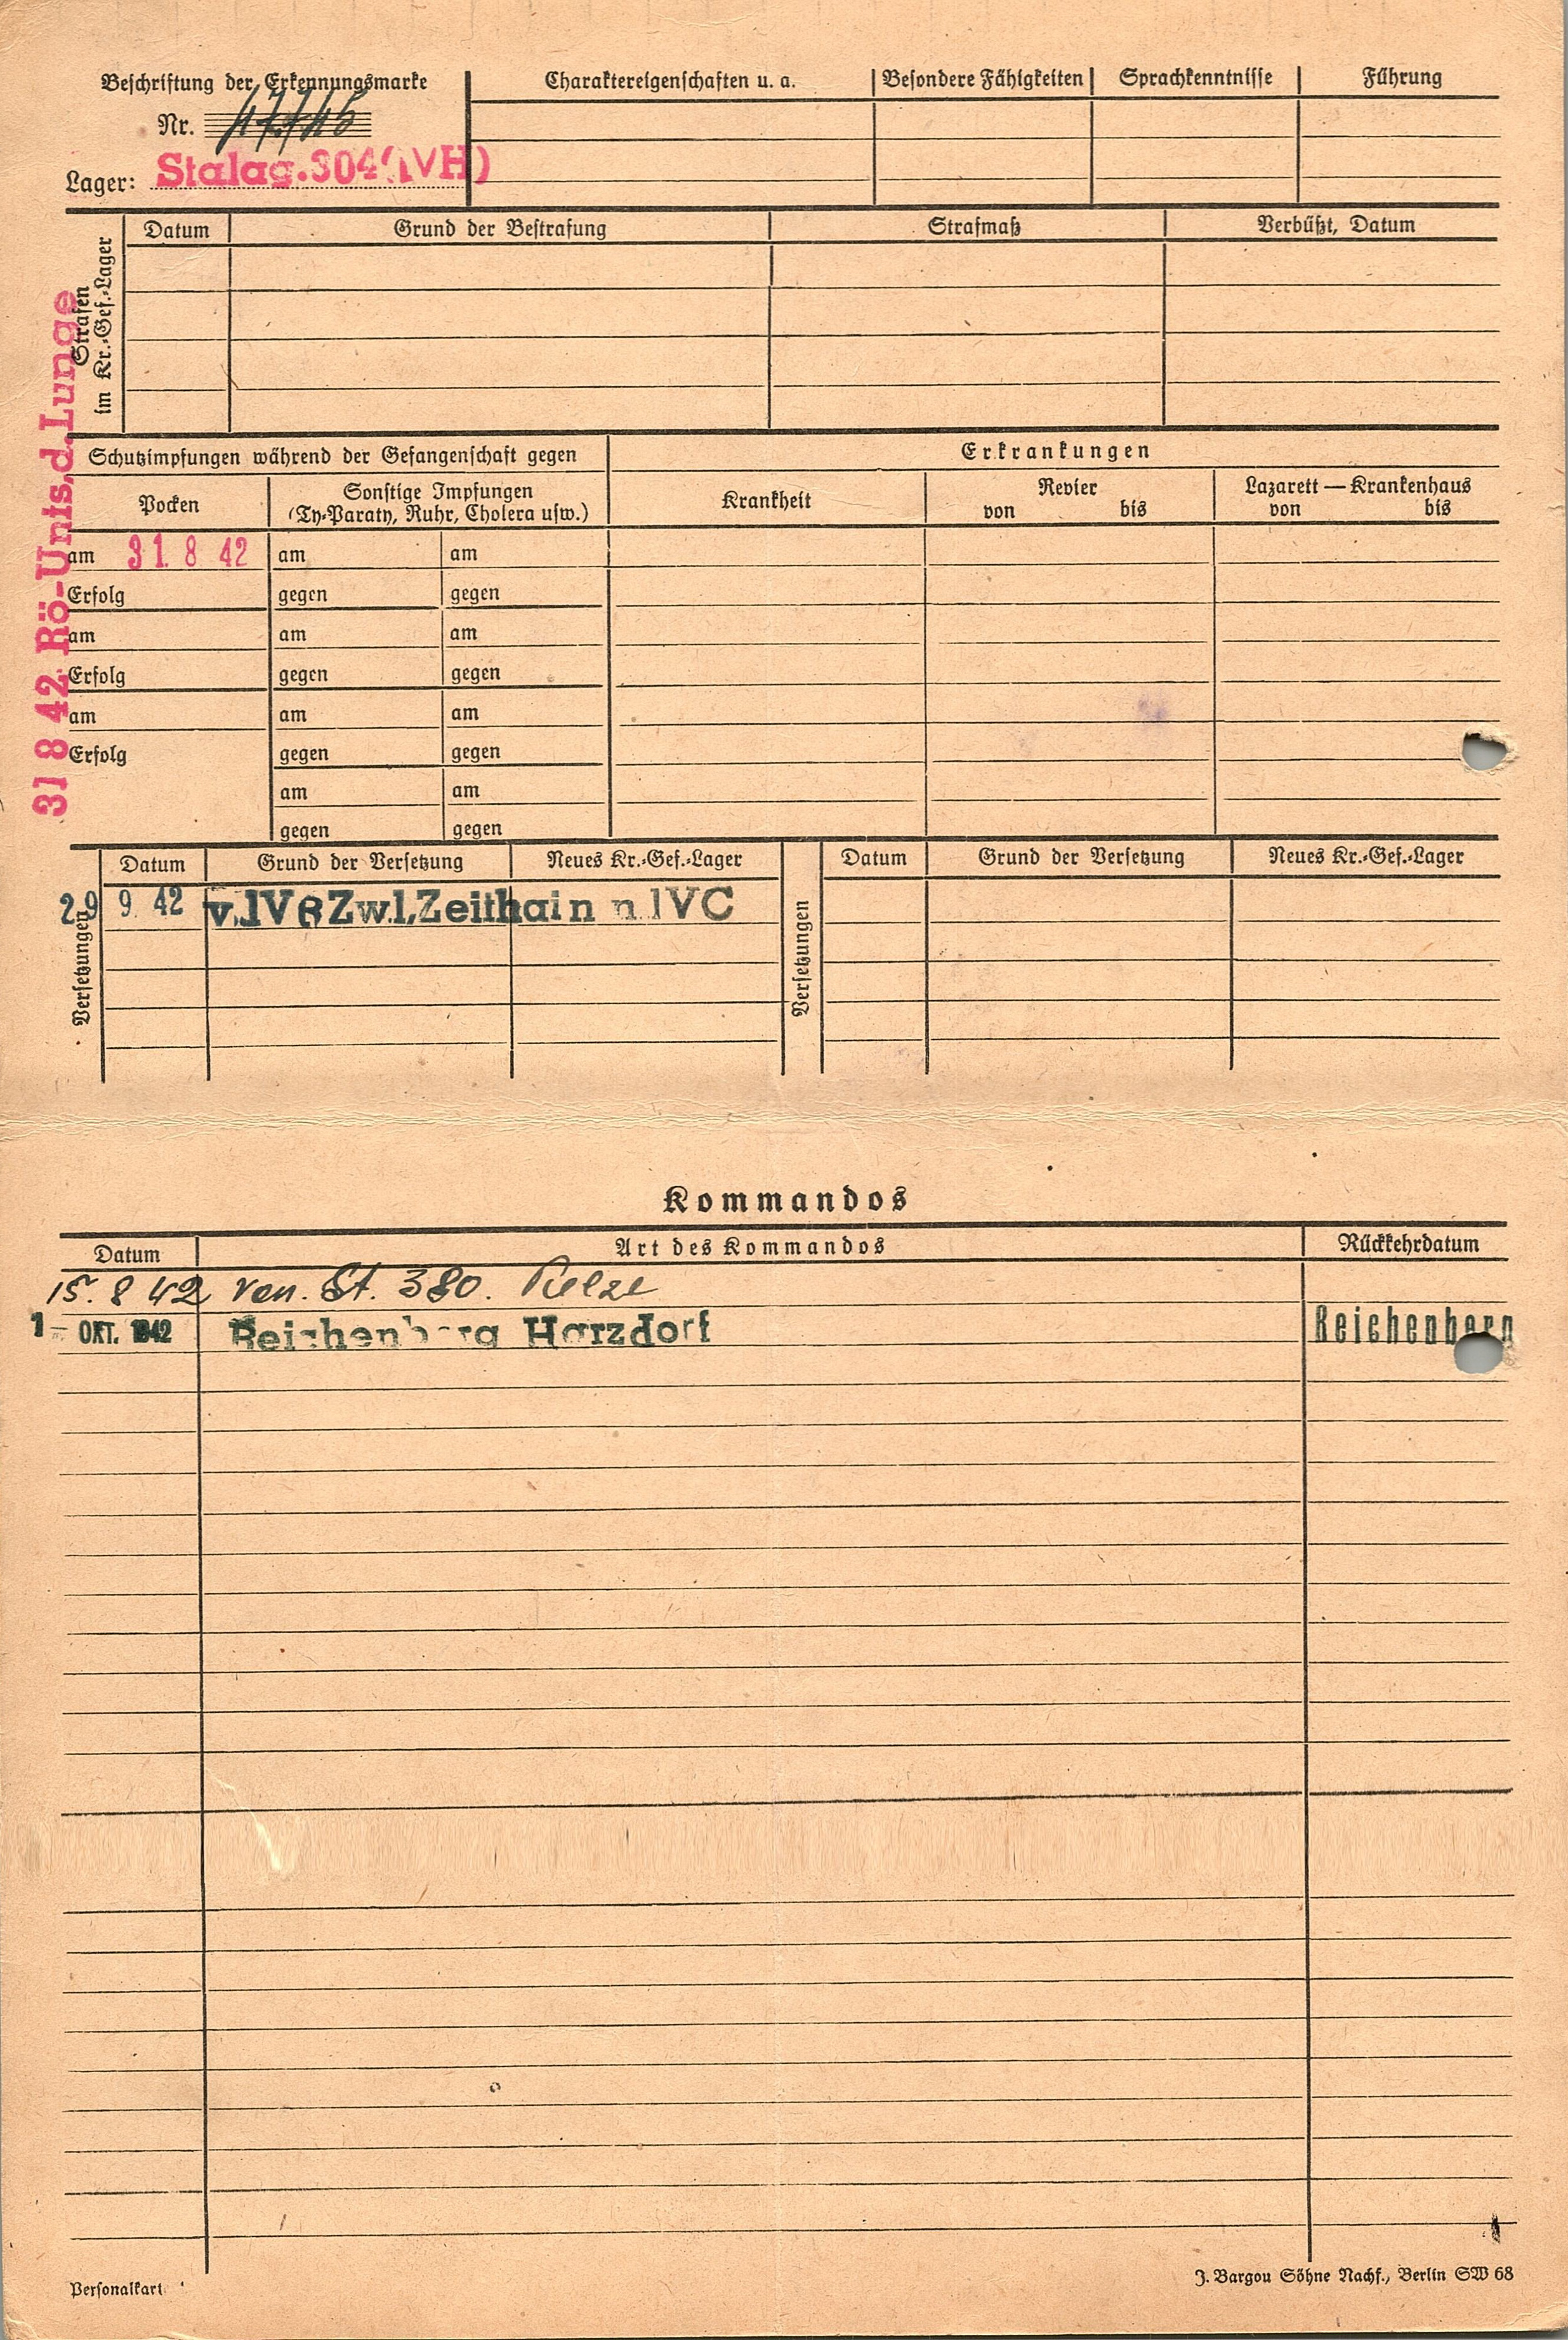 Beschriftung der Erkennungsmarke
Nr.
Lager: Stalag.304(IVH)
Charaktereigenschaften u. a.
Besondere Fähigkeiten
Sprachkenntnisse
Führung
Strafen
im Kr.-Gef.-Lager
Datum
Grund der Bestrafung
Strafmaß
Verbüßt, Datum
31 8 42 Rö-Unts.d.Lunge
Schutzimpfungen während der Gefangenschaft gegen
Erkrankungen
Pocken
Sonstige Impfungen
(Ty-Paraty, Ruhr, Cholera usw.)
Krankheit
Revier
von bis
Lazarett — Krankenhaus
von bis
am 31. 8 42 am am
Erfolg gegen gegen
am am am
Erfolg gegen gegen
am am am
Erfolg gegen gegen
am am
gegen gegen
Versetzungen
Datum
Grund der Versetzung
Neues Kr.-Gef.-Lager
Versetzungen
Datum
Grund der Versetzung
Neues Kr.-Gef.-Lager
29 9 42 v.IVB Zw.l.Zeithain n IVC
Kommandos
Datum
Art des Kommandos
Rückkehrdatum
15. 8 42 von. St. 380.
1 - OKT. 1942 Reichenberg Harzdorf Reichenberg
Personalkart
J. Bargou Söhne Nachf., Berlin SW 68